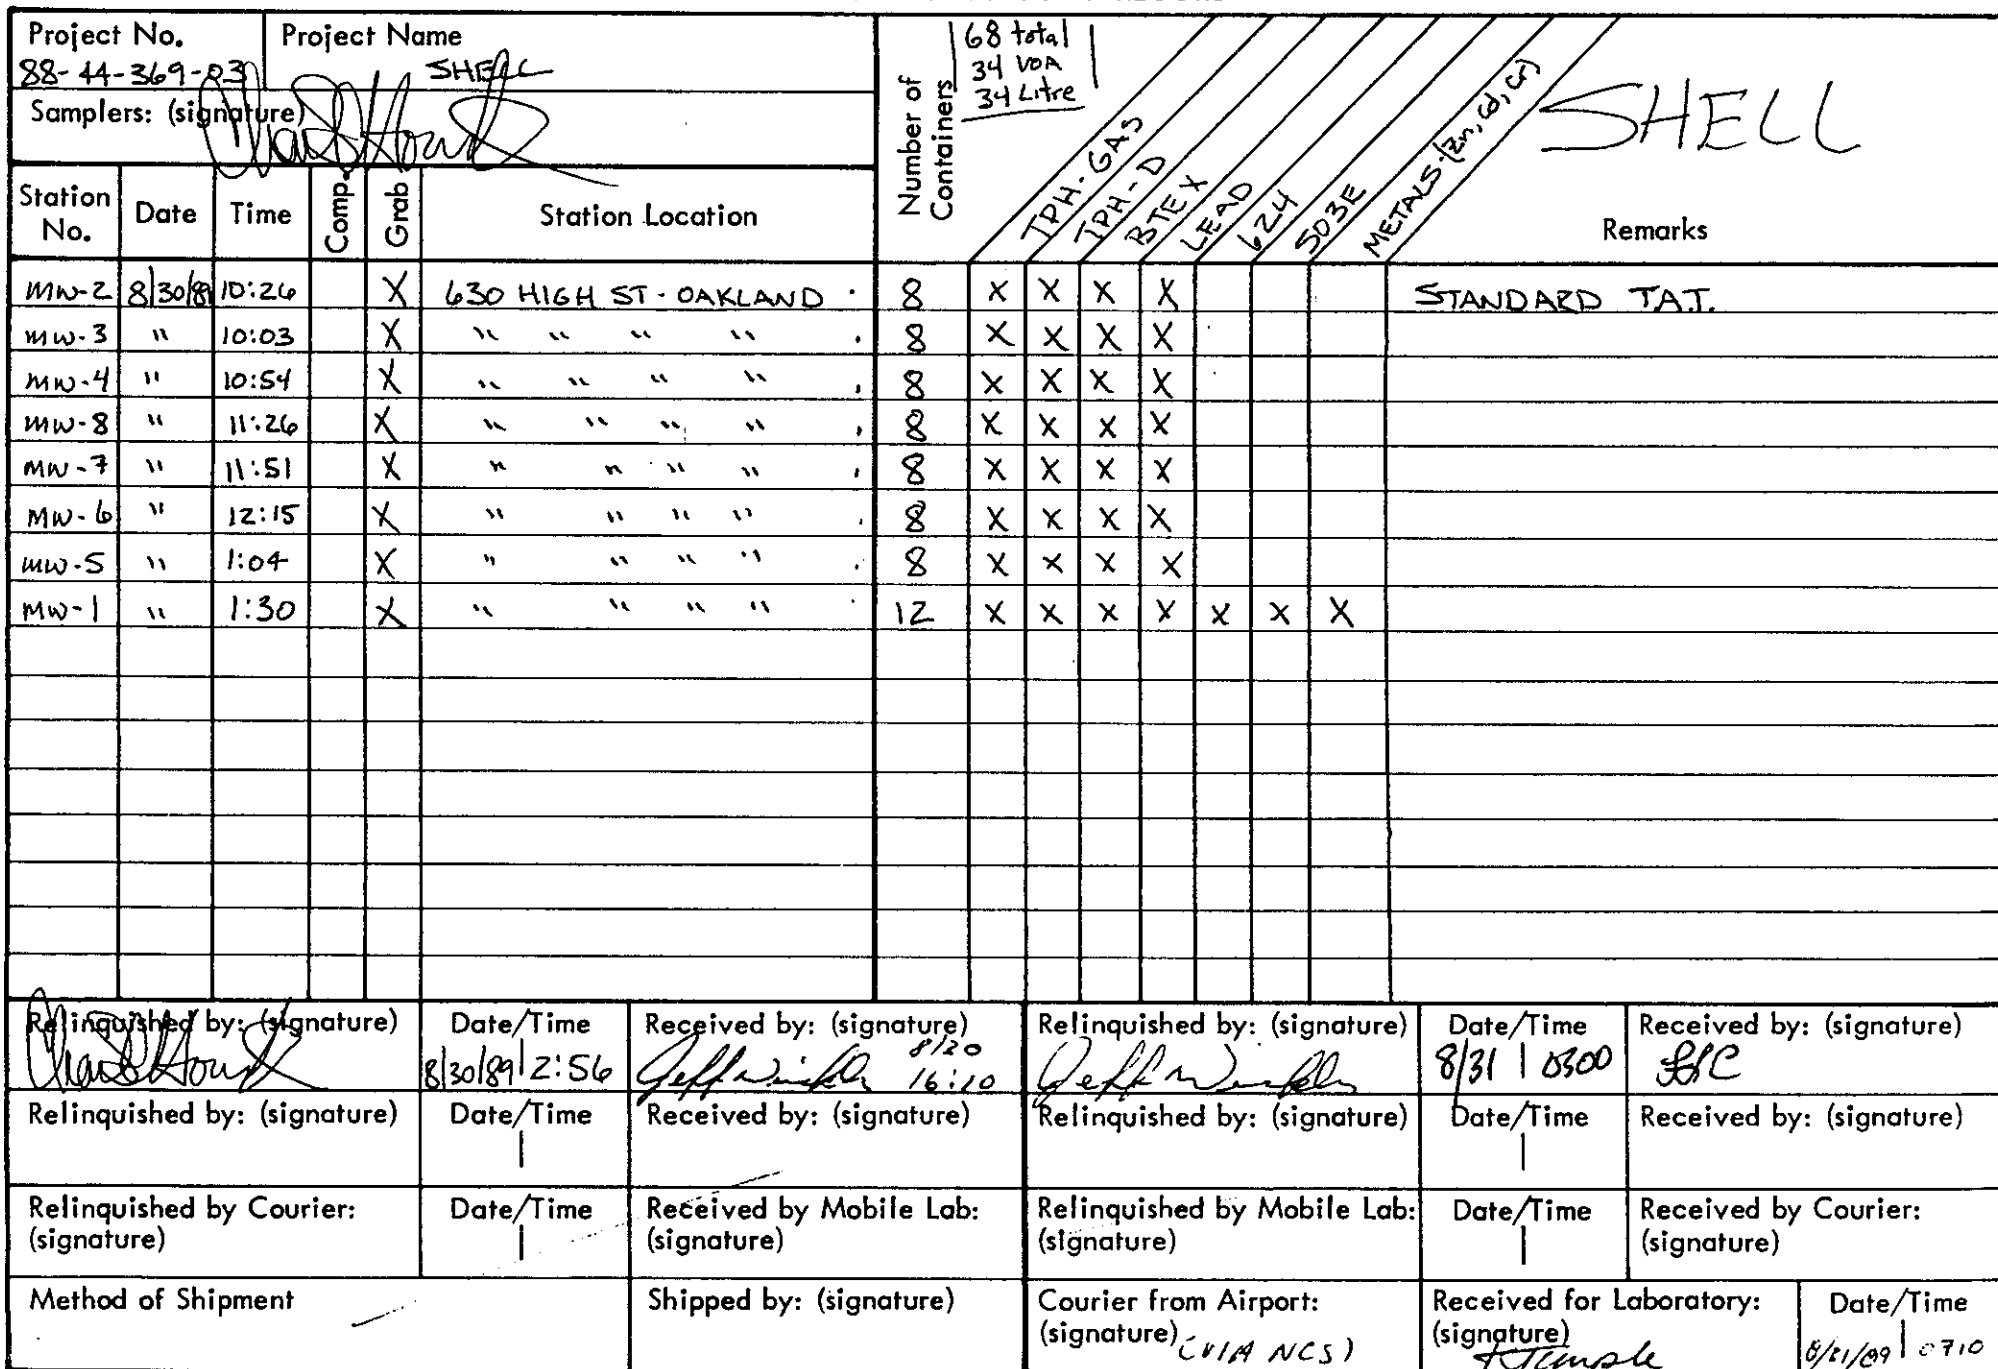 Project No.
88-44-369-03
Project Name
SHELL
Samplers: (signature)
Number of Containers
68 total
34 VOA
34 Litre
TPH-GAS
TPH-D
BTEX
LEAD
624
503E
METALS-(Zn, Cd, Cr)
SHELL
Station No. Date Time Comp. Grab Station Location Remarks
MW-2 8/30/89 10:26 X 630 HIGH ST - OAKLAND 8 X X X X STANDARD T.A.T.
MW-3 " 10:03 X " " " " 8 X X X X
MW-4 " 10:54 X " " " " 8 X X X X
MW-8 " 11:26 X " " " " 8 X X X X
MW-7 " 11:51 X " " " " 8 X X X X
MW-6 " 12:15 X " " " " 8 X X X X
MW-5 " 1:04 X " " " " 8 X X X X
MW-1 " 1:30 X " " " " 12 X X X X X X X
Relinquished by: (signature)
Date/Time
8/30/89 | 2:56
Received by: (signature)
16:10
Relinquished by: (signature)
Date/Time
8/31 | 0300
Received by: (signature)
Relinquished by: (signature)
Date/Time
Received by: (signature)
Relinquished by: (signature)
Date/Time
Received by: (signature)
Relinquished by Courier: (signature)
Date/Time
Received by Mobile Lab: (signature)
Relinquished by Mobile Lab: (signature)
Date/Time
Received by Courier: (signature)
Method of Shipment
Shipped by: (signature)
Courier from Airport: (signature)
(VIA NCS)
Received for Laboratory: (signature)
Date/Time
8/31/89 | 0710